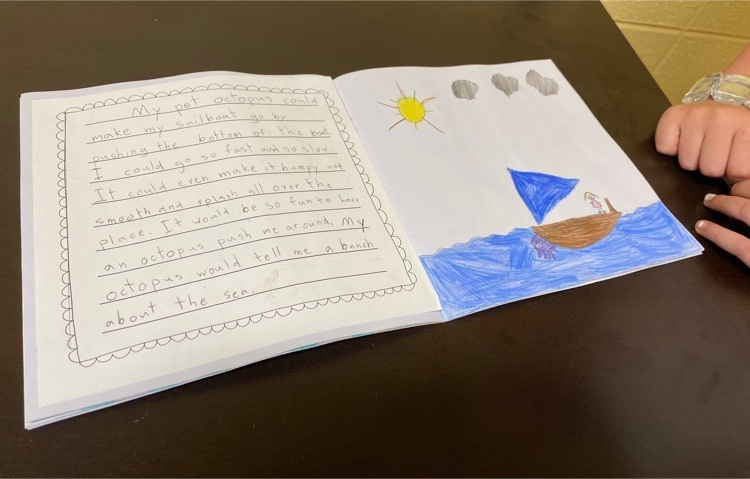 My pet octopus could
make my sailboat go by
pushing the bottom of the boat.
I could go so fast and so slow.
It could even make it bumpy and
smooth and splash all over the
place. It would be so fun to have
an octopus push me around. My
octopus would tell me a bunch
about the sea.